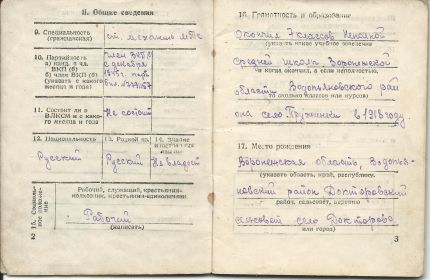 II. Общие сведения
9. Специальность
(гражданская)
ст. механик МТС
10. Партийность
а) канд. в чл.
ВКП (б)
б) член ВКП (б)
(указать с какого
месяца и года)
член ВКПб
с декабря
1945 г.
11. Состоит ли в
ВЛКСМ и с како-
го месяца и года
Не состоит
12. Национальность
Русский
13. Родной яз.
Русский
14. Знание
Не владеет
15. Социаль-
ное положе-
ние
Рабочий, служащий, крестьянин-
колхозник, крестьянин-единоличник
Рабочий
(написать)
2
16. Грамотность и образование
Окончил 7 классов
(указать какое учебное заведение
Средней школы Воронежской
и когда окончил, а если неполностью,
области Водопьяновского рай
то сколько классов или курсов)
она село в 1938 году
17. Место рождения
Воронежская область, Водопья-
(указать область, край, республику,
новский район Докторовский
район, сельсовет, деревню
сельсовет село Докторово
или город)
3